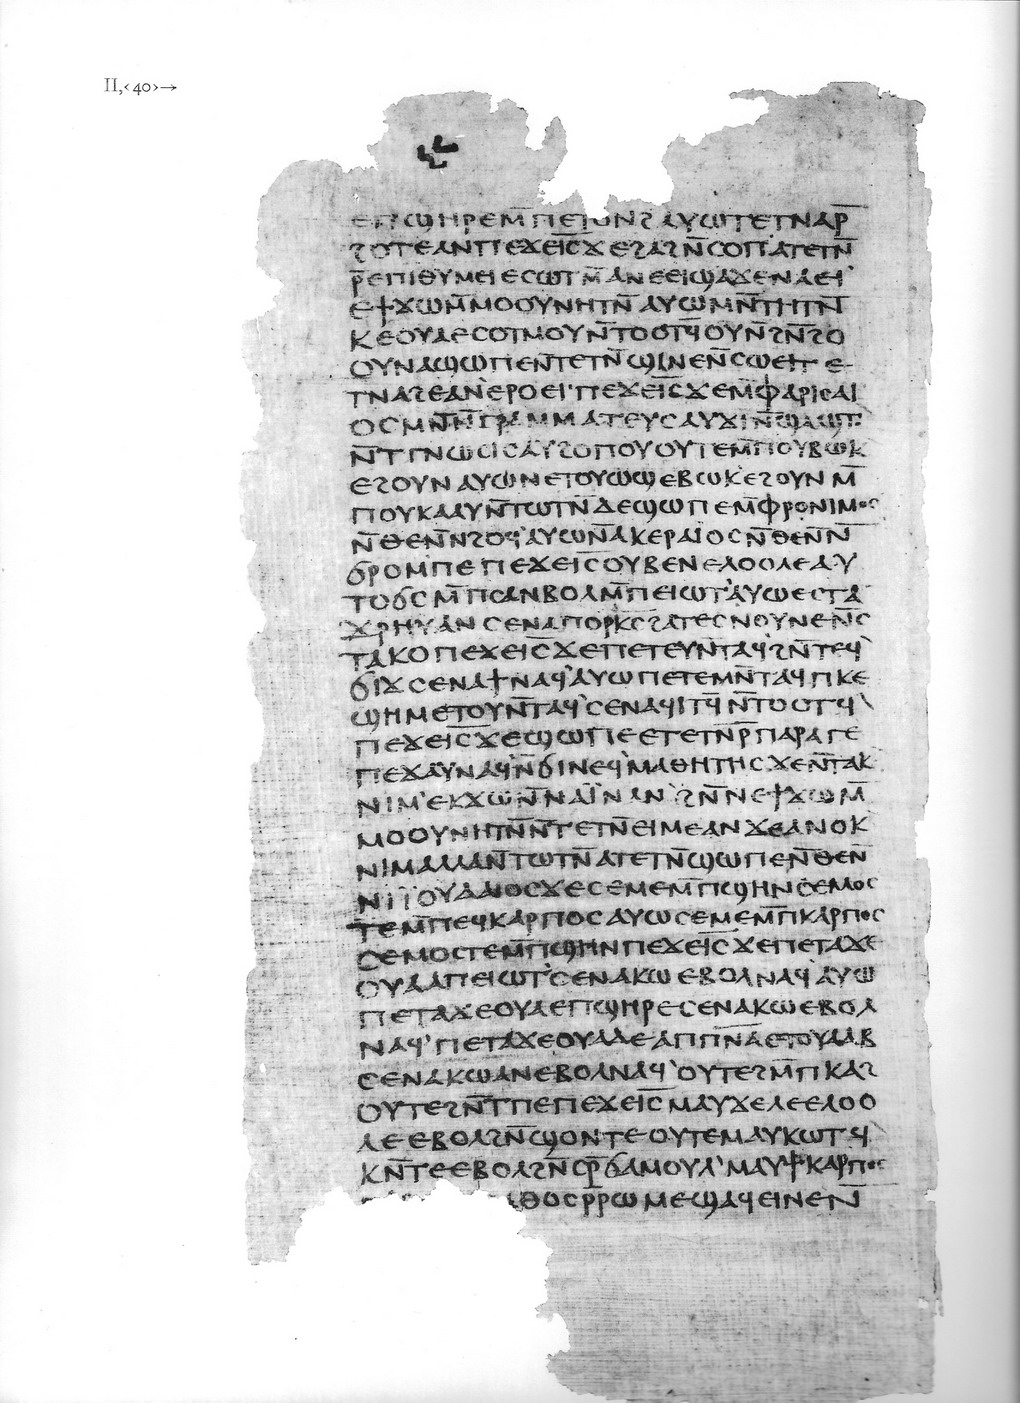 II,<40>→
ⲉⲡϣⲏⲣⲉ ⲙ̄ⲡⲉⲧⲟⲛϩ ⲁⲩⲱ ⲧⲉⲧⲛⲁⲣ̄
ϩⲟⲧⲉ ⲁⲛ ⲡⲉϫⲉ ⲓ̅ⲥ̅ ϫⲉ ϩⲁϩ ⲛ̄ⲥⲟⲡ ⲁⲧⲉⲧⲛ̄
ⲣ̄ⲉⲡⲓⲑⲩⲙⲉⲓ ⲉⲥⲱⲧⲙ̄ ⲁⲛⲉⲉⲓϣⲁϫⲉ ⲛⲁⲉⲓ
ⲉϯϫⲱ ⲙ̄ⲙⲟⲟⲩ ⲛⲏⲧⲛ̄ ⲁⲩⲱ ⲙⲛ̄ⲧⲏⲧⲛ̄
ⲕⲉⲟⲩⲁ ⲉⲥⲟⲧⲙⲟⲩ ⲛ̄ⲧⲟⲟⲧϥ̄ ⲟⲩⲛ̄ ϩⲛ̄ϩⲟ
ⲟⲩ ⲛⲁϣⲱⲡⲉ ⲛ̄ⲧⲉⲧⲛ̄ϣⲓⲛⲉ ⲛ̄ⲥⲱⲉⲓ ⲧⲉ
ⲧⲛⲁϩⲉ ⲁⲛ ⲉⲣⲟⲉⲓ ⲡⲉϫⲉ ⲓ̅ⲥ̅ ϫⲉ ⲙ̄ⲫⲁⲣⲓⲥⲁⲓ
ⲟⲥ ⲙⲛ̄ ⲛ̄ⲅⲣⲁⲙⲙⲁⲧⲉⲩⲥ ⲁⲩϫⲓ ⲛ̄ϣⲁϣⲧ
ⲛ̄ⲧⲅⲛⲱⲥⲓⲥ ⲁⲩϩⲟⲡⲟⲩ ⲟⲩⲧⲉ ⲙ̄ⲡⲟⲩⲃⲱⲕ
ⲉϩⲟⲩⲛ ⲁⲩⲱ ⲛⲉⲧⲟⲩⲱϣ ⲉⲃⲱⲕ ⲉϩⲟⲩⲛ ⲙ̄
ⲡⲟⲩⲕⲁⲁⲩ ⲛ̄ⲧⲱⲧⲛ̄ ⲇⲉ ϣⲱⲡⲉ ⲙ̄ⲫⲣⲟⲛⲓⲙⲟⲥ
ⲛ̄ⲑⲉ ⲛ̄ⲛϩⲟϥ ⲁⲩⲱ ⲛ̄ⲁⲕⲉⲣⲁⲓⲟⲥ ⲛ̄ⲑⲉ ⲛ̄ⲛ̄
ϭⲣⲟⲙⲡⲉ ⲡⲉϫⲉ ⲓ̅ⲥ̅ ⲟⲩⲃⲉⲛⲉⲗⲟⲟⲗⲉ ⲁⲩ
ⲧⲟϭⲥ ⲙ̄ⲡⲥⲁ ⲛⲃⲟⲗ ⲙ̄ⲡⲉⲓⲱⲧ ⲁⲩⲱ ⲉⲥⲧⲁ
ϫⲣⲏⲩ ⲁⲛ ⲥⲉⲛⲁⲡⲟⲣⲕⲥ̄ ϩⲁ ⲧⲉⲥⲛⲟⲩⲛⲉ ⲛ̄ⲥ
ⲧⲁⲕⲟ ⲡⲉϫⲉ ⲓ̅ⲥ̅ ϫⲉ ⲡⲉⲧⲉⲩⲛ̄ⲧⲁϥ ϩⲛ̄ ⲧⲉϥ
ϭⲓϫ ⲥⲉⲛⲁϯ ⲛⲁϥ ⲁⲩⲱ ⲡⲉⲧⲉ ⲙⲛ̄ⲧⲁϥ ⲡⲕⲉ
ϣⲏⲙ ⲉⲧⲟⲩⲛ̄ⲧⲁϥ ⲥⲉⲛⲁϥⲓⲧϥ̄ ⲛ̄ⲧⲟⲟⲧϥ
ⲡⲉϫⲉ ⲓ̅ⲥ̅ ϫⲉ ϣⲱⲡⲉ ⲉⲧⲉⲧⲛ̄ⲣ̄ⲡⲁⲣⲁⲅⲉ
ⲡⲉϫⲁⲩ ⲛⲁϥ ⲛ̄ϭⲓ ⲛⲉϥⲙⲁⲑⲏⲧⲏⲥ ϫⲉ ⲛ̄ⲧⲁⲕ
ⲛⲓⲙ ⲉⲕϫⲱ ⲛ̄ⲛⲁⲓ̈ ⲛⲁⲛ ϩⲛ̄ ⲛⲉϯϫⲱ ⲙ̄
ⲙⲟⲟⲩ ⲛⲏⲧⲛ̄ ⲛ̄ⲧⲉⲧⲛ̄ⲉⲓⲙⲉ ⲁⲛ ϫⲉ ⲁⲛⲟⲕ
ⲛⲓⲙ ⲁⲗⲗⲁ ⲛ̄ⲧⲱⲧⲛ̄ ⲁⲧⲉⲧⲛ̄ϣⲱⲡⲉ ⲛ̄ⲑⲉ ⲛ̄
ⲛⲓⲓ̈ⲟⲩⲇⲁⲓⲟⲥ ϫⲉ ⲥⲉⲙⲉ ⲙ̄ⲡϣⲏⲛ ⲥⲉⲙⲟⲥ
ⲧⲉ ⲙ̄ⲡⲉϥⲕⲁⲣⲡⲟⲥ ⲁⲩⲱ ⲥⲉⲙⲉ ⲙ̄ⲡⲕⲁⲣⲡⲟⲥ
ⲥⲉⲙⲟⲥⲧⲉ ⲙ̄ⲡϣⲏⲛ ⲡⲉϫⲉ ⲓ̅ⲥ̅ ϫⲉ ⲡⲉⲧⲁϫⲉ
ⲟⲩⲁ ⲁⲡⲉⲓⲱⲧ ⲥⲉⲛⲁⲕⲱ ⲉⲃⲟⲗ ⲛⲁϥ ⲁⲩⲱ
ⲡⲉⲧⲁϫⲉ ⲟⲩⲁ ⲉⲡϣⲏⲣⲉ ⲥⲉⲛⲁⲕⲱ ⲉⲃⲟⲗ
ⲛⲁϥ ⲡⲉⲧⲁϫⲉ ⲟⲩⲁ ⲇⲉ ⲁⲡⲡ̅ⲛ̅ⲁ̅ ⲉⲧⲟⲩⲁⲁⲃ
ⲥⲉⲛⲁⲕⲱ ⲁⲛ ⲉⲃⲟⲗ ⲛⲁϥ ⲟⲩⲧⲉ ϩⲙ̄ ⲡⲕⲁϩ
ⲟⲩⲧⲉ ϩⲛ̄ ⲧⲡⲉ ⲡⲉϫⲉ ⲓ̅ⲥ̅ ⲙⲁⲩϫⲉⲗⲉ ⲉⲗⲟⲟ
ⲗⲉ ⲉⲃⲟⲗ ϩⲛ̄ ϣⲟⲛⲧⲉ ⲟⲩⲧⲉ ⲙⲁⲩⲕⲱⲧϥ
ⲕⲛ̄ⲧⲉ ⲉⲃⲟⲗ ϩⲛ̄ ⲥⲣ̄ϭⲁⲙⲟⲩⲗ ⲙⲁⲩϯ ⲕⲁⲣⲡⲟⲥ
ⲁⲑⲟⲥ ⲣ̄ⲣⲱⲙⲉ ϣⲁϥⲉⲓⲛⲉ ⲛ̄